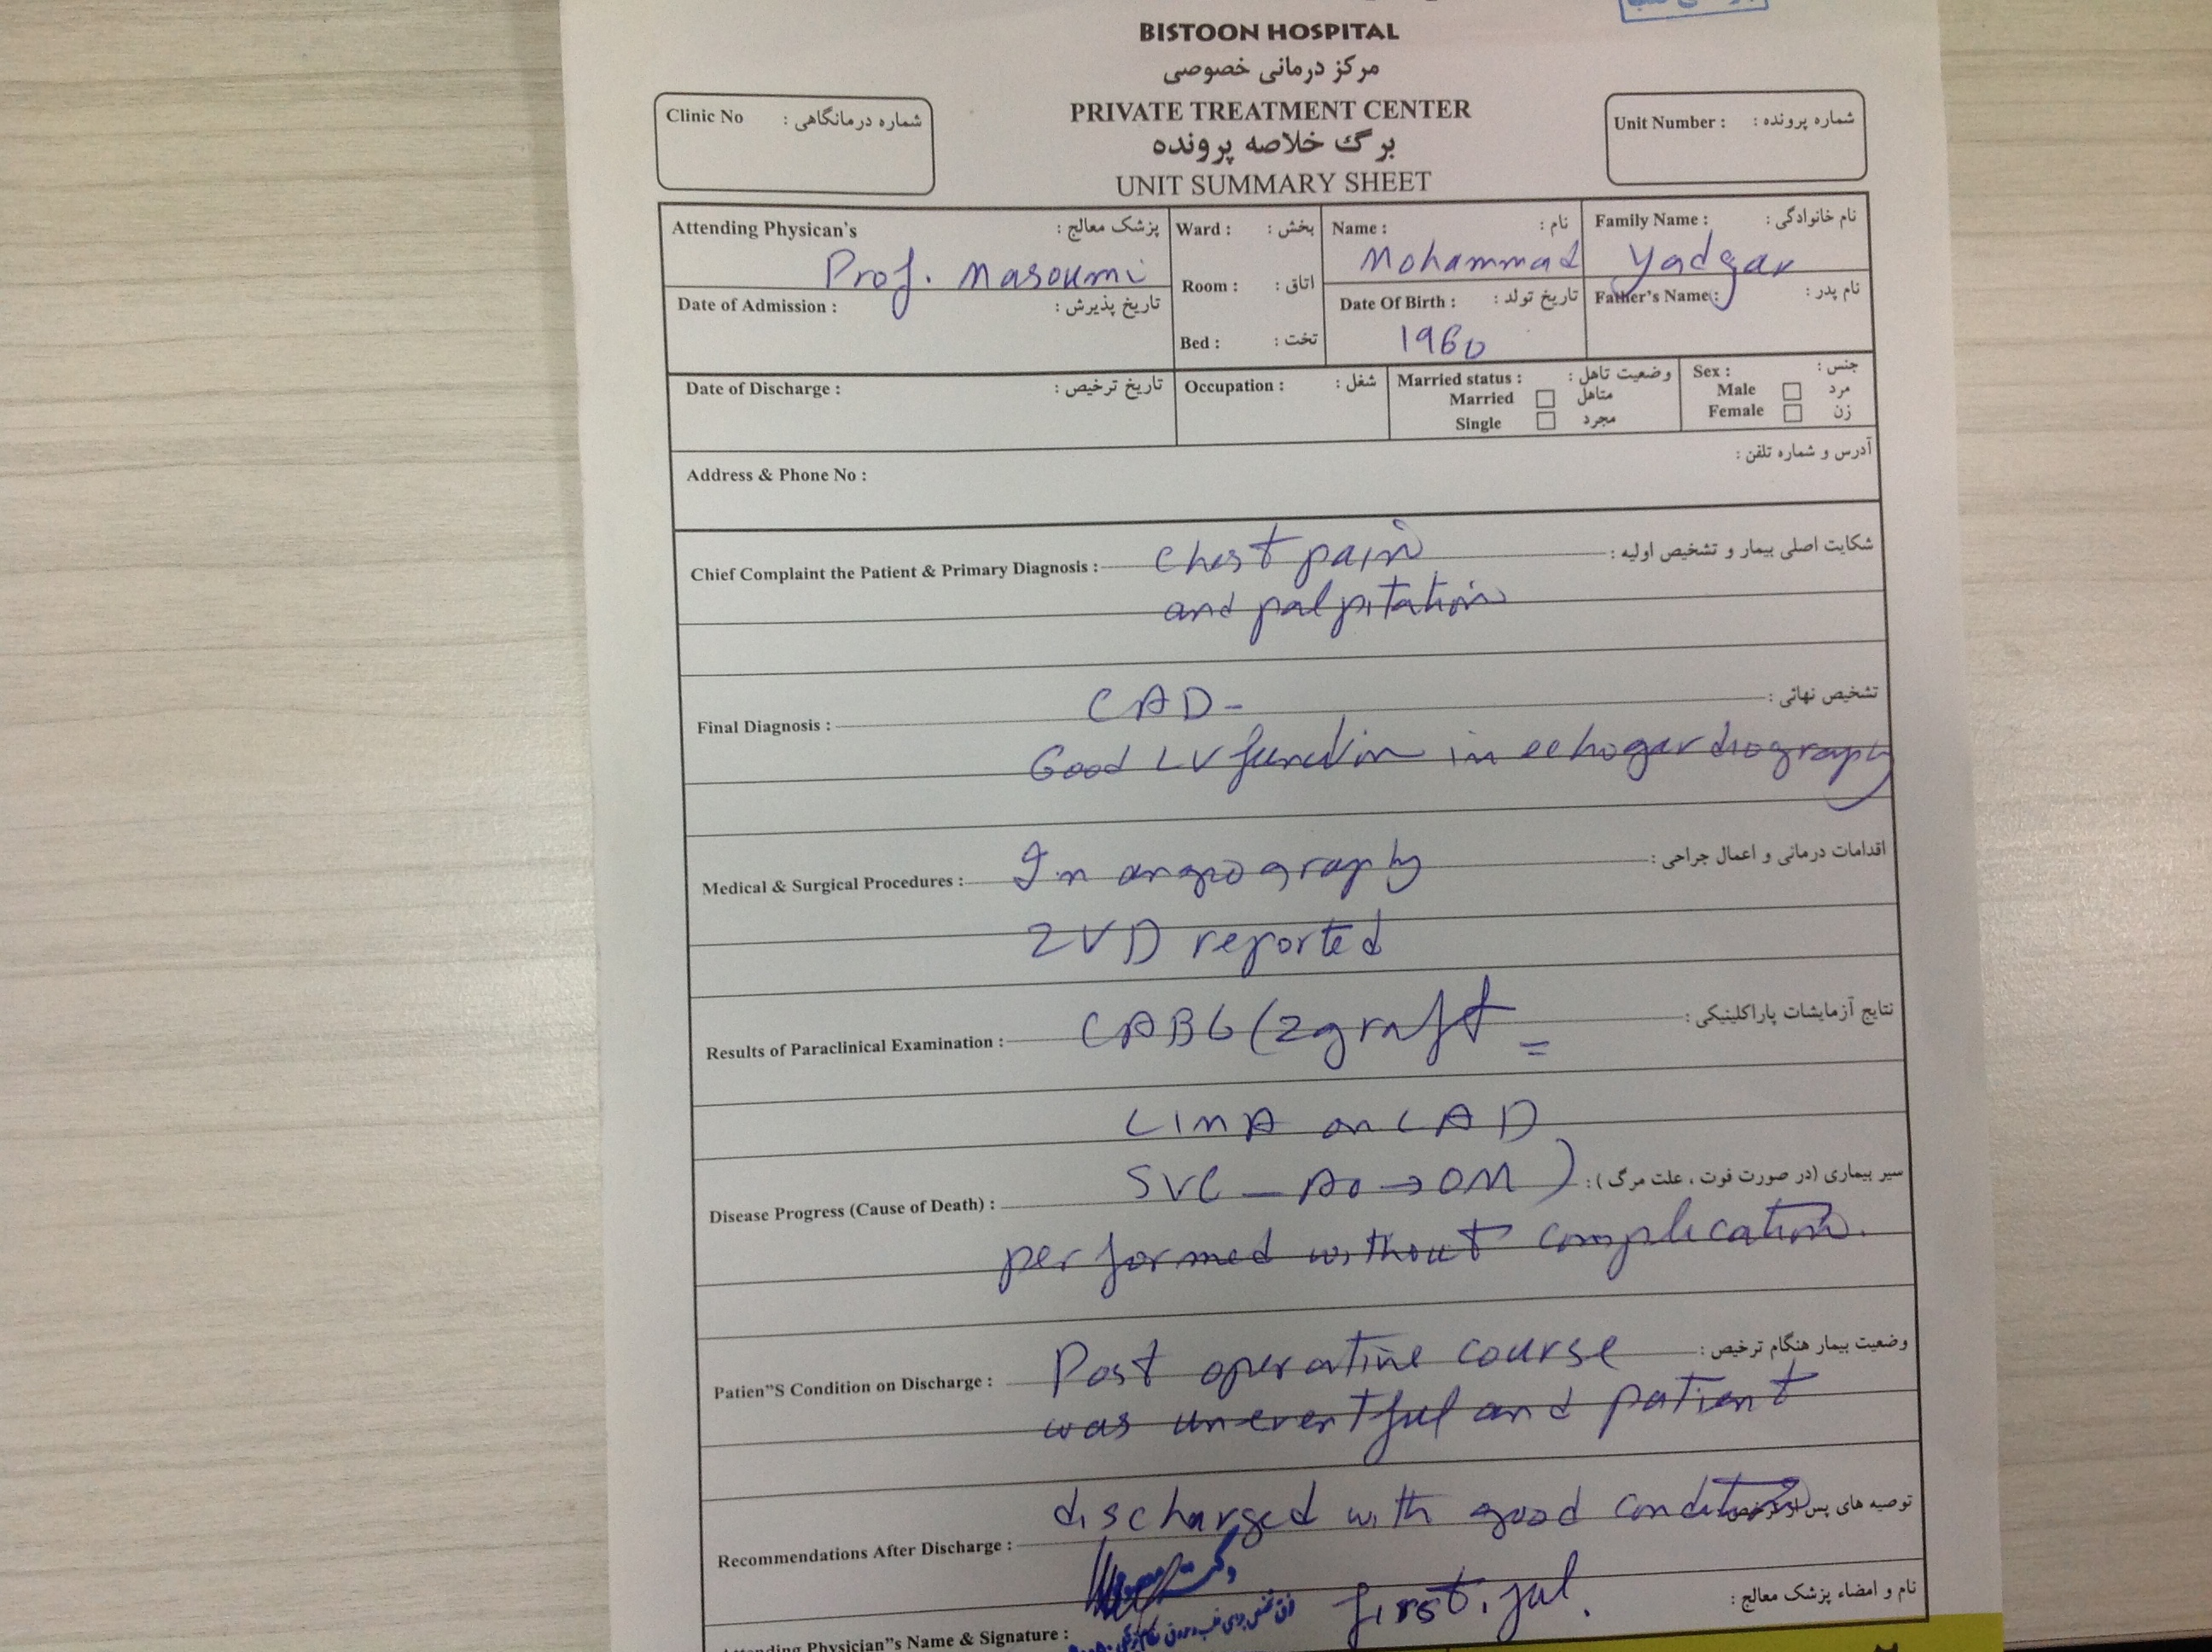 BISTOON HOSPITAL
مرکز درمانی خصوصی
PRIVATE TREATMENT CENTER
برگ خلاصه پرونده
UNIT SUMMARY SHEET
Clinic No شماره درمانگاهی :
Unit Number : شماره پرونده :
Attending Physican's پزشک معالج :
Prof. Masoumi
Ward : بخش :
Room : اتاق :
Bed : تخت :
Name : نام :
Mohammad
Family Name : نام خانوادگی :
Yadgar
Date of Admission : تاریخ پذیرش :
Date Of Birth : تاریخ تولد :
1960
Father's Name : نام پدر :
Date of Discharge : تاریخ ترخیص :
Occupation : شغل :
Married status : وضعیت تاهل :
Married متاهل
Single مجرد
Sex : جنس :
Male مرد
Female زن
Address & Phone No : آدرس و شماره تلفن :
Chief Complaint the Patient & Primary Diagnosis : chest pain شکایت اصلی بیمار و تشخیص اولیه :
and palpitation
Final Diagnosis : CAD - تشخیص نهائی :
Good LV function in echogardiography
Medical & Surgical Procedures : In angiography اقدامات درمانی و اعمال جراحی :
2VD reported
Results of Paraclinical Examination : CABG (2graft = نتایج آزمایشات پاراکلینیکی :
LIMA on LAD
Disease Progress (Cause of Death) : SVG - Ao → OM ) سیر بیماری (در صورت فوت ، علت مرگ ) :
performed without complication.
Patien"S Condition on Discharge : Post operative course وضعیت بیمار هنگام ترخیص :
was uneventful and patient
Recommendations After Discharge : discharged with good condition توصیه های پس از ترخیص
first. jul.
دکتر
Physician"s Name & Signature : نام و امضاء پزشک معالج :